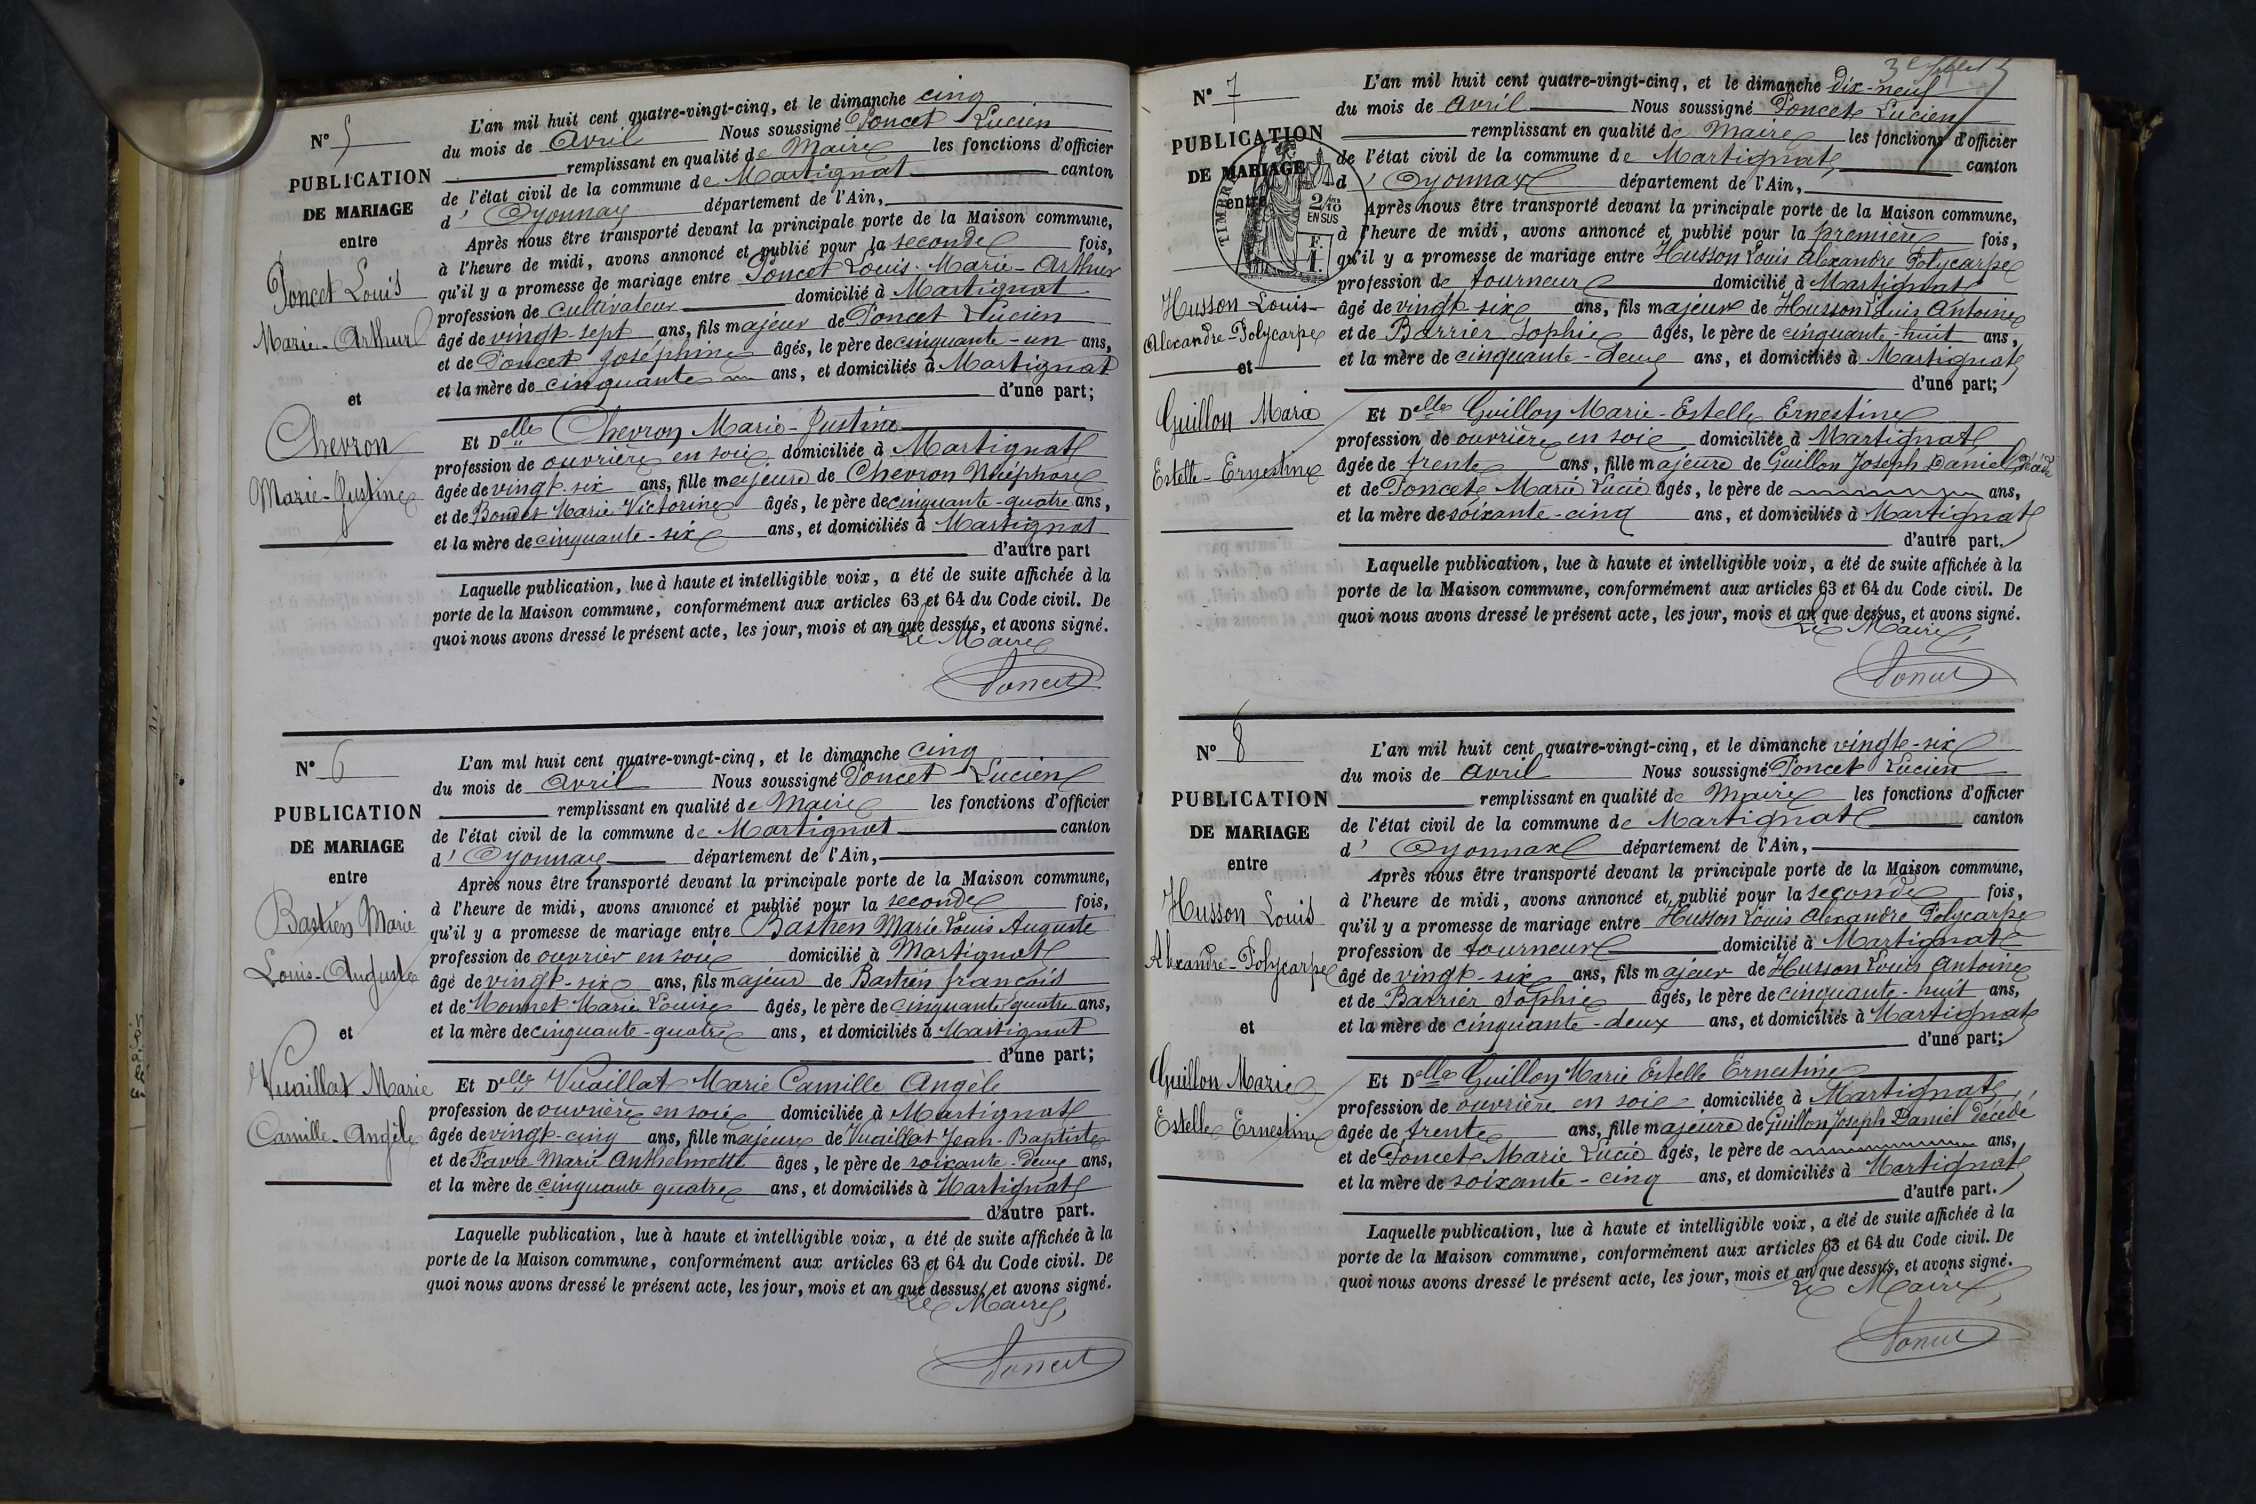 N° 5
PUBLICATION
DE MARIAGE
entre
Poncet Louis
Marie-Arthur
et
Chevron
Marie-Justine
L'an mil huit cent quatre-vingt-cinq, et le dimanche cinq
du mois de Avril Nous soussigné Poncet Lucien
remplissant en qualité de Maire les fonctions d'officier
de l'état civil de la commune de Martignat canton
d'Oyonnax département de l'Ain,
Après nous être transporté devant la principale porte de la Maison commune,
à l'heure de midi, avons annoncé et publié pour la seconde fois,
qu'il y a promesse de mariage entre Poncet Louis-Marie-Arthur
profession de cultivateur domicilié à Martignat
âgé de vingt sept ans, fils majeur de Poncet Lucien
et de Poncet Joséphine âgés, le père de cinquante-un ans,
et la mère de cinquante ans, et domiciliés à Martignat
d'une part;
Et Delle Chevron Marie-Justine
profession de ouvrière en soie domiciliée à Martignat
âgée de vingt-six ans, fille majeure de Chevron Nicéphore
et de Bondet Marie Victorine âgés, le père de cinquante-quatre ans,
et la mère de cinquante-six ans, et domiciliés à Martignat
d'autre part
Laquelle publication, lue à haute et intelligible voix, a été de suite affichée à la
porte de la Maison commune, conformément aux articles 63 et 64 du Code civil. De
quoi nous avons dressé le présent acte, les jour, mois et an que dessus, et avons signé.
Le Maire
Poncet
N° 6
PUBLICATION
DE MARIAGE
entre
Bastien Marie
Louis-Auguste
et
Vuaillat Marie
Camille-Angèle
L'an mil huit cent quatre-vingt-cinq, et le dimanche cinq
du mois de avril Nous soussigné Poncet Lucien
remplissant en qualité de Maire les fonctions d'officier
de l'état civil de la commune de Martignat canton
d'Oyonnax département de l'Ain,
Après nous être transporté devant la principale porte de la Maison commune,
à l'heure de midi, avons annoncé et publié pour la seconde fois,
qu'il y a promesse de mariage entre Bastien Marie Louis Auguste
profession de ouvrier en soie domicilié à Martignat
âgé de vingt-six ans, fils majeur de Bastien françois
et de Monnet Marie Louise âgés, le père de cinquante quatre ans,
et la mère de cinquante-quatre ans, et domiciliés à Martignat
d'une part;
Et Delle Vuaillat Marie Camille Angèle
profession de ouvrière en soie domiciliée à Martignat
âgée de vingt-cinq ans, fille majeure de Vuaillat Jean-Baptiste
et de Favre Marie Anthelmette âges, le père de soixante-deux ans,
et la mère de cinquante quatre ans, et domiciliés à Martignat
d'autre part.
Laquelle publication, lue à haute et intelligible voix, a été de suite affichée à la
porte de la Maison commune, conformément aux articles 63 et 64 du Code civil. De
quoi nous avons dressé le présent acte, les jour, mois et an que dessus, et avons signé.
Le Maire,
Poncet
N° 7
PUBLICATION
DE MARIAGE
entre
TIMBRE
2/10
EN SUS
F.
1.
Husson Louis-
Alexandre-Polycarpe
et
Guillon Marie
Estelle-Ernestine
L'an mil huit cent quatre-vingt-cinq, et le dimanche dix-neuf
du mois de avril Nous soussigné Poncet Lucien
remplissant en qualité de Maire les fonctions d'officier
de l'état civil de la commune de Martignat canton
d'Oyonnax département de l'Ain,
Après nous être transporté devant la principale porte de la Maison commune,
à l'heure de midi, avons annoncé et publié pour la première fois,
qu'il y a promesse de mariage entre Husson Louis Alexandre Polycarpe
profession de tourneur domicilié à Martignat
âgé de vingt six ans, fils majeur de Husson Louis Antoine
et de Barrier Sophie âgés, le père de cinquante-huit ans,
et la mère de cinquante-deux ans, et domiciliés à Martignat
d'une part;
Et Delle Guillon Marie-Estelle Ernestine
profession de ouvrière en soie domiciliée à Martignat
âgée de trente ans, fille majeure de Guillon Joseph Daniel
et de Poncet Marie Lucie âgés, le père de ans,
et la mère de soixante-cinq ans, et domiciliés à Martignat
d'autre part.
Laquelle publication, lue à haute et intelligible voix, a été de suite affichée à la
porte de la Maison commune, conformément aux articles 63 et 64 du Code civil. De
quoi nous avons dressé le présent acte, les jour, mois et an que dessus, et avons signé.
Le Maire,
Poncet
N° 8
PUBLICATION
DE MARIAGE
entre
Husson Louis
Alexandre-Polycarpe
et
Guillon Marie
Estelle Ernestine
L'an mil huit cent quatre-vingt-cinq, et le dimanche vingt-six
du mois de avril Nous soussigné Poncet Lucien
remplissant en qualité de Maire les fonctions d'officier
de l'état civil de la commune de Martignat canton
d'Oyonnax département de l'Ain,
Après nous être transporté devant la principale porte de la Maison commune,
à l'heure de midi, avons annoncé et publié pour la seconde fois,
qu'il y a promesse de mariage entre Husson Louis Alexandre Polycarpe
profession de tourneur domicilié à Martignat
âgé de vingt-six ans, fils majeur de Husson Louis Antoine
et de Barrier Sophie âgés, le père de cinquante-huit ans,
et la mère de cinquante-deux ans, et domiciliés à Martignat
d'une part;
Et Delle Guillon Marie Estelle Ernestine
profession de ouvrière en soie domiciliée à Martignat
âgée de trente ans, fille majeure de Guillon Joseph Daniel décédé
et de Poncet Marie Lucie âgés, le père de ans,
et la mère de soixante-cinq ans, et domiciliés à Martignat
d'autre part.
Laquelle publication, lue à haute et intelligible voix, a été de suite affichée à la
porte de la Maison commune, conformément aux articles 63 et 64 du Code civil. De
quoi nous avons dressé le présent acte, les jour, mois et an que dessus, et avons signé.
Le Maire,
Poncet